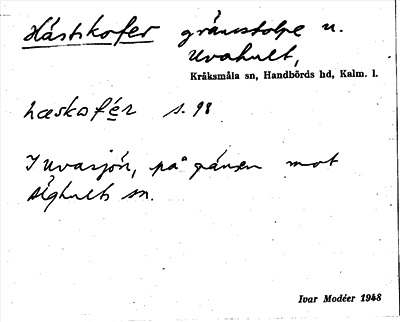 Hästikofer gränsstolpe u.
Uvahult,
Kråksmåla sn, Handbörds hd, Kalm. l.
hæskofér s. 98
I Uvasjön, på gränsen mot
Älghults sn.
Ivar Modéer 1948